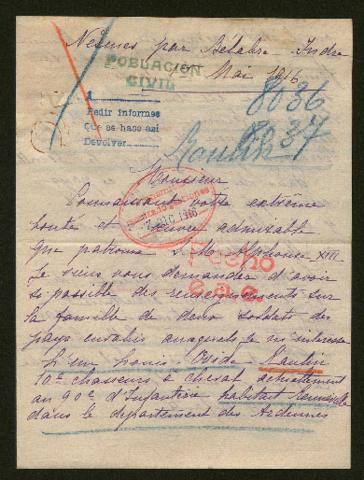 Nesmes par Bélâbre Indre
POBLACION
CIVIL
Mai 1916
8036
8037
Pedir informes
Que se hace así
Devolver
Naulin
Monsieur
DIC 1916
Connaissant votre extrême
bonté et l'œuvre admirable
que patronne M. Alphonse XIII
Fecho
Je viens vous demander d'avoir
si possible des renseignements sur
la famille de deux soldats des
pays envahis auxquels je m'intéresse
Naulin
10e chasseurs à cheval actuellement
au 90e d'Infanterie habitait
dans le département des Ardennes